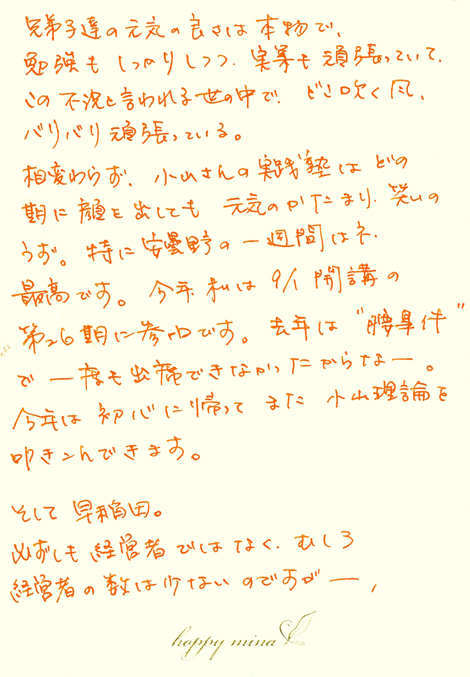 兄弟子達の元気の良さは本物で、
勉強もしっかりしつつ、実業も頑張っていて、
この不況と言われる世の中で、どこ吹く風、
バリバリ頑張っている。
相変わらず、小山さんの実践塾はどの
期に顔を出しても元気のかたまり、笑いの
うず。特に安曇野の一週間はネ、
最高です。今年、私は9/1開講の
第26期に参加です。去年は"腰事件"
で一度も出席できなかったからなー。
今年は初心に帰ってまた小山理論を
叩きこんできます。
そして早稲田。
必ずしも経営者ではなく、むしろ
経営者の数は少ないのですがー、
happy mina